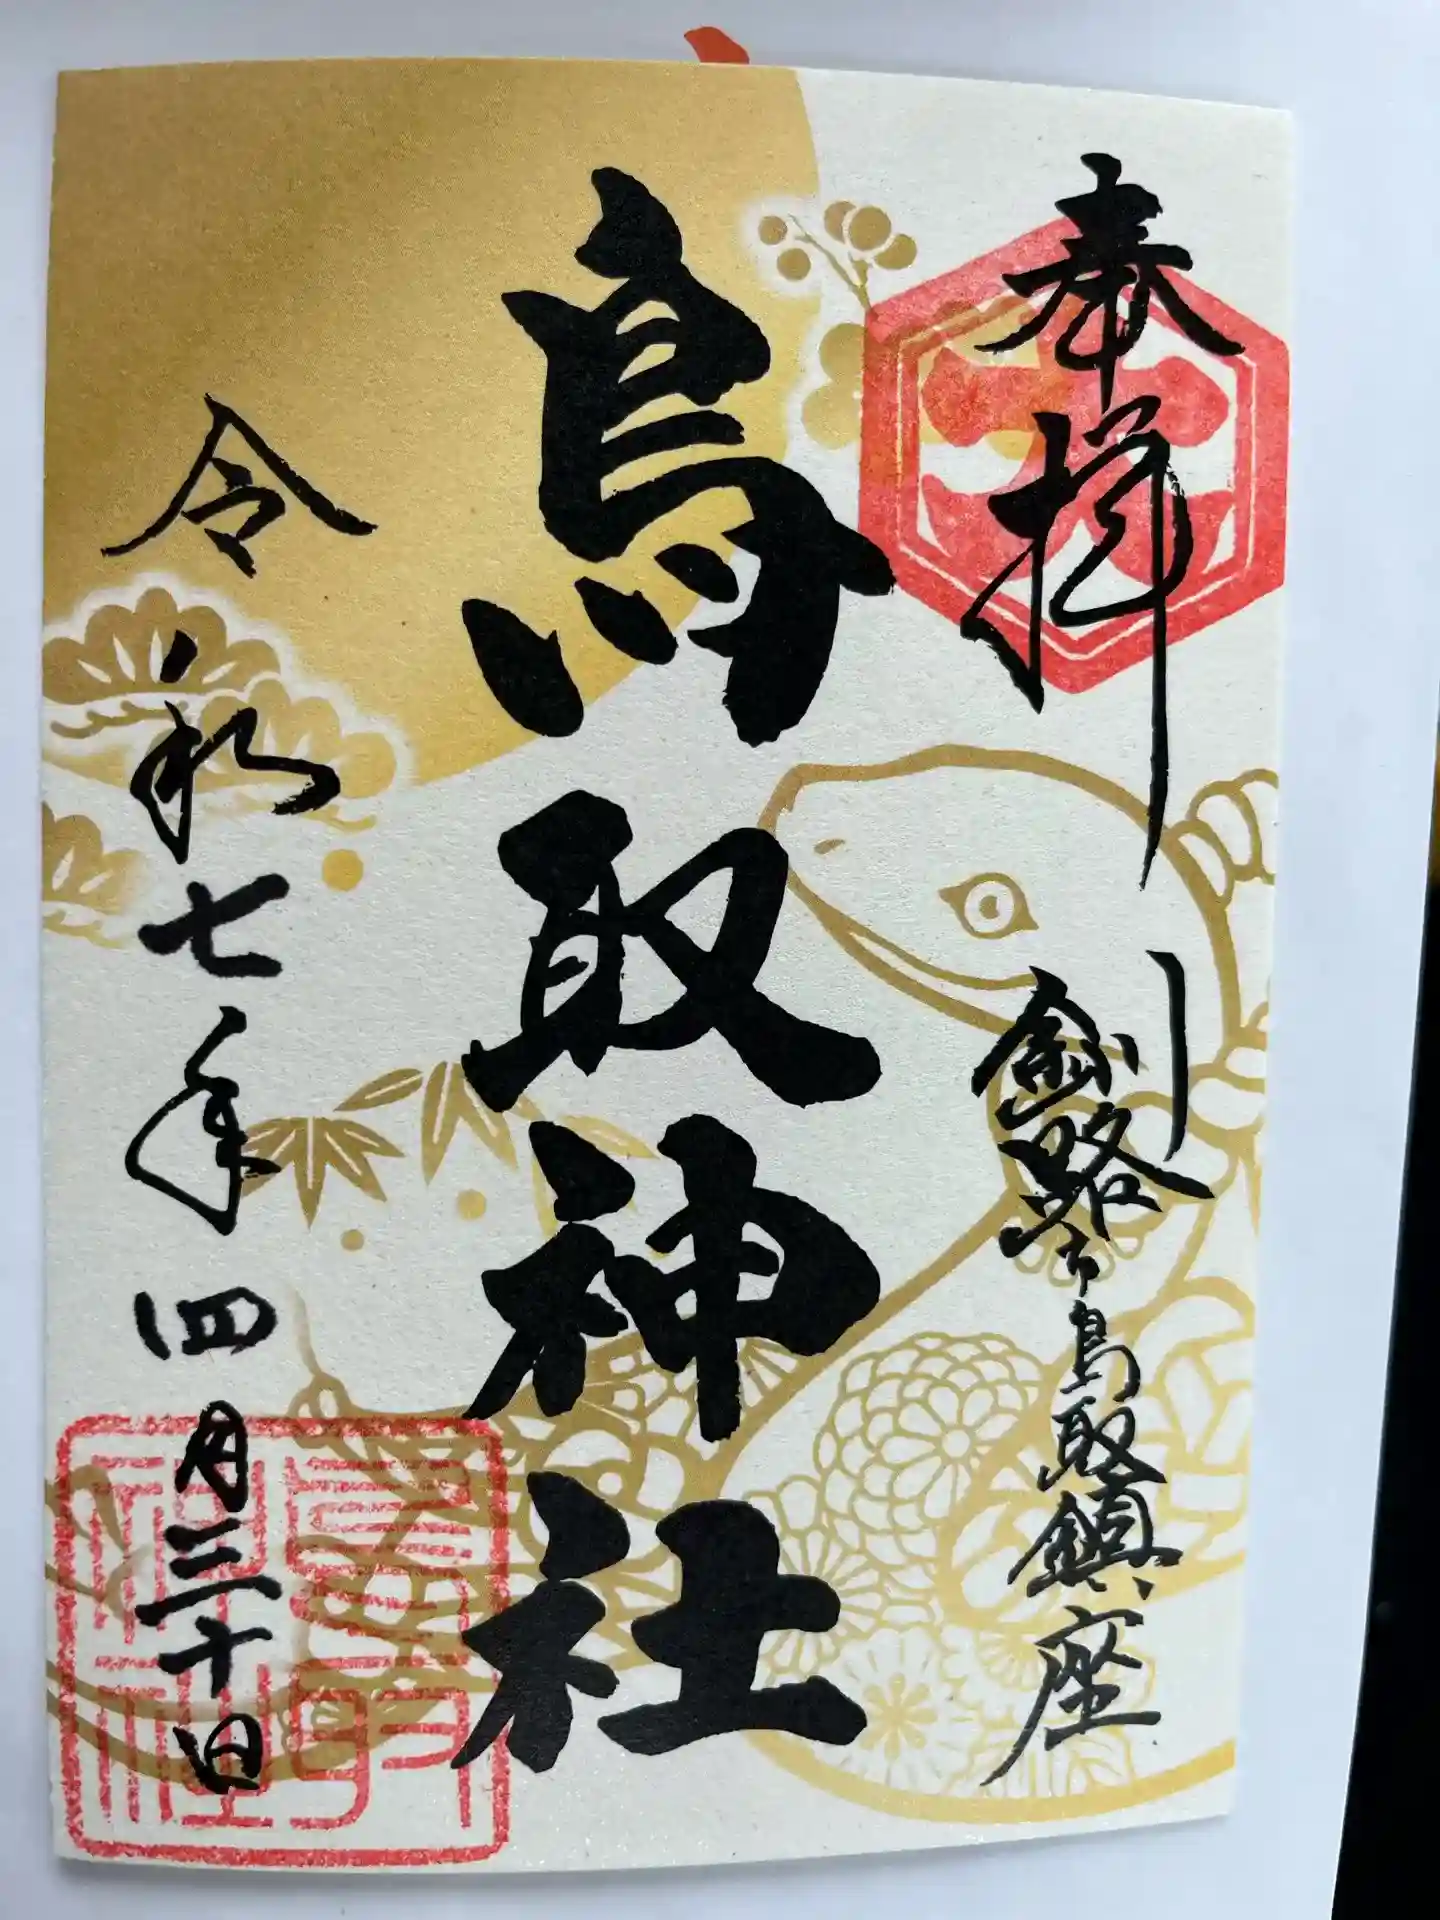 奉拝
釧路市鳥取鎮座
鳥取神社
令和七年四月三十日
鳥取神社